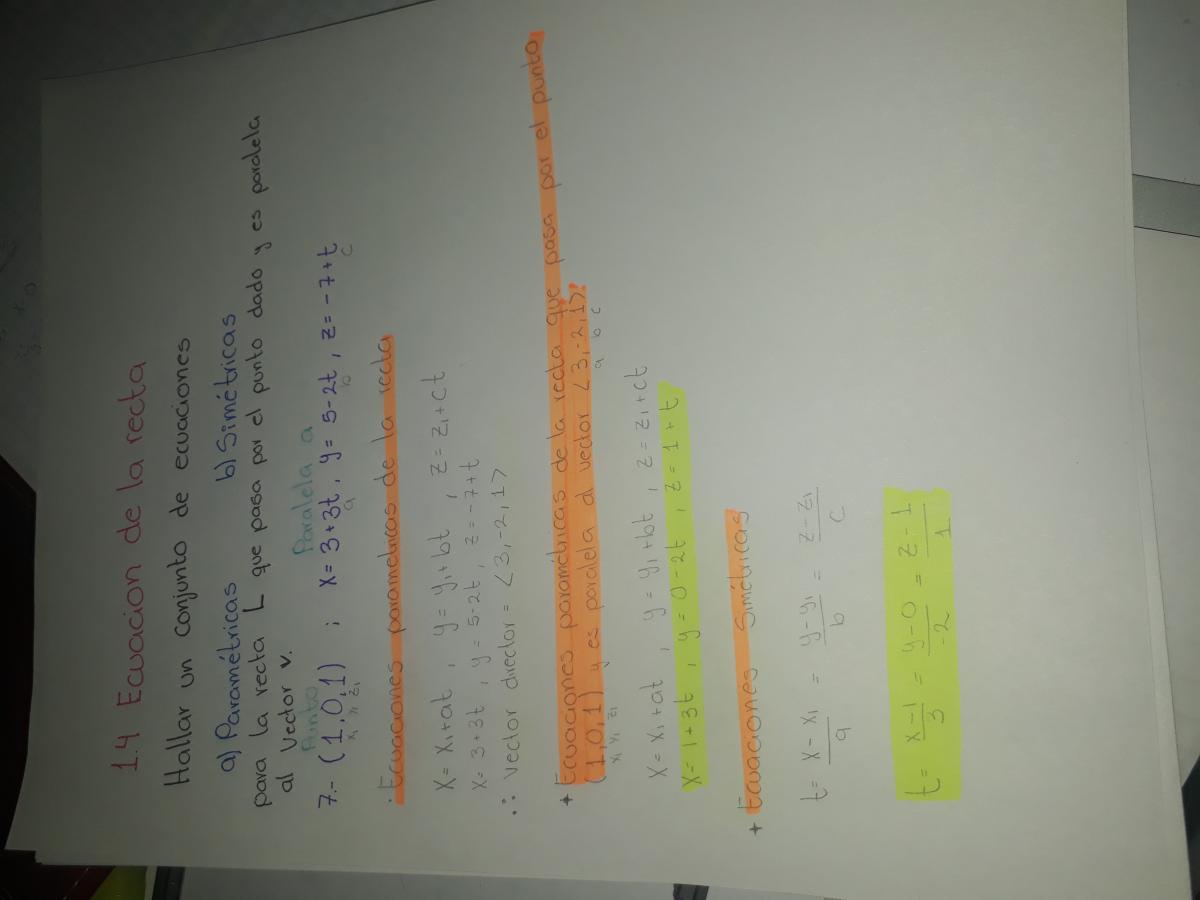 1.4 Ecuacion de la recta
Hallar un conjunto de ecuaciones
a) Paramétricas b) Simétricas
para la recta L que pasa por el punto dado y es paralela
al Vector v.
Punto Paralela a
7.- (1,0,1) ; x = 3+3t, y = 5-2t, z = -7+t
x₁ y₁ z₁ a b c
· Ecuaciones parametricas de la recta
x = x₁+at , y = y₁+bt , z = z₁+ct
x = 3+3t , y = 5-2t, z = -7+t
∴ vector director = <3,-2,1>
+ Ecuaciones paramétricas de la recta que pasa por el punto
(1,0,1) y es paralela al vector <3,-2,1>.
x₁ y₁ z₁ a b c
x = x₁+at , y = y₁+bt , z = z₁+ct
x = 1+3t , y = 0-2t , z = 1+t
+ Ecuaciones Simétricas
t = x-x₁/a = y-y₁/b = z-z₁/c
t = x-1/3 = y-0/-2 = z-1/1